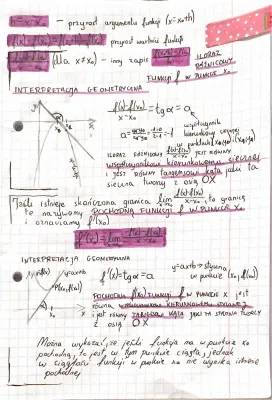 h=x-x₀ - przyrost argumentu funkcji (x=x₀+h)
f(x)-f(x₀)=f(x₀+h)-f(x₀) przyrost wartości funkcji
f(x)-f(x₀)/x-x₀ (dla x≠x₀) - inny zapis f(x₀+h)-f(x₀)/h
ILORAZ
RÓŻNICOWY
FUNKCJI f W PUNKCIE x₀
INTERPRETACJA GEOMETRYCZNA
f(x)-f(x₀)/x-x₀ = tgα = a
współczynnik
kierunkowy siecznej
w punktach
ILORAZ RÓŻNICOWY f(x)-f(x₀)/x-x₀ JEST RÓWNY
WSPÓŁCZYNNIKOWI KIERUNKOWEMU SIECZNEJ
I JEST RÓWNY TANGENSOWI KĄTA JAKI TA
SIECZNA TWORZY Z OSIĄ OX
Jeśli istnieje skończona granica lim f(x)-f(x₀)/x-x₀, to granicę
tę nazywamy POCHODNĄ FUNKCJI f W PUNKCIE x₀
i oznaczamy f'(x₀)
f'(x₀)=lim f(x)-f(x₀)/x-x₀
INTERPRETACJA GEOMETRYCZNA
y=ax+b
P(x₀,f(x₀))
f'(x₀)=tgα=a
y=ax+b → styczna
w punkcie (x₀,f(x₀))
POCHODNA f'(x₀) FUNKCJI f W PUNKCIE x₀ jest
równa WSPÓŁCZYNNIKOWI KIERUNKOWEMU STYCZNEJ
i jest równy TANGENSOWI KĄTA JAKI TA STYCZNA TWORZY
Z OSIĄ OX
Można wykazać, że jeśli funkcja ma w punkcie x₀
pochodną, to jest w tym punkcie ciągła, jednak
z ciągłości funkcji w punkcie x₀ nie wynika istnienie
pochodnej